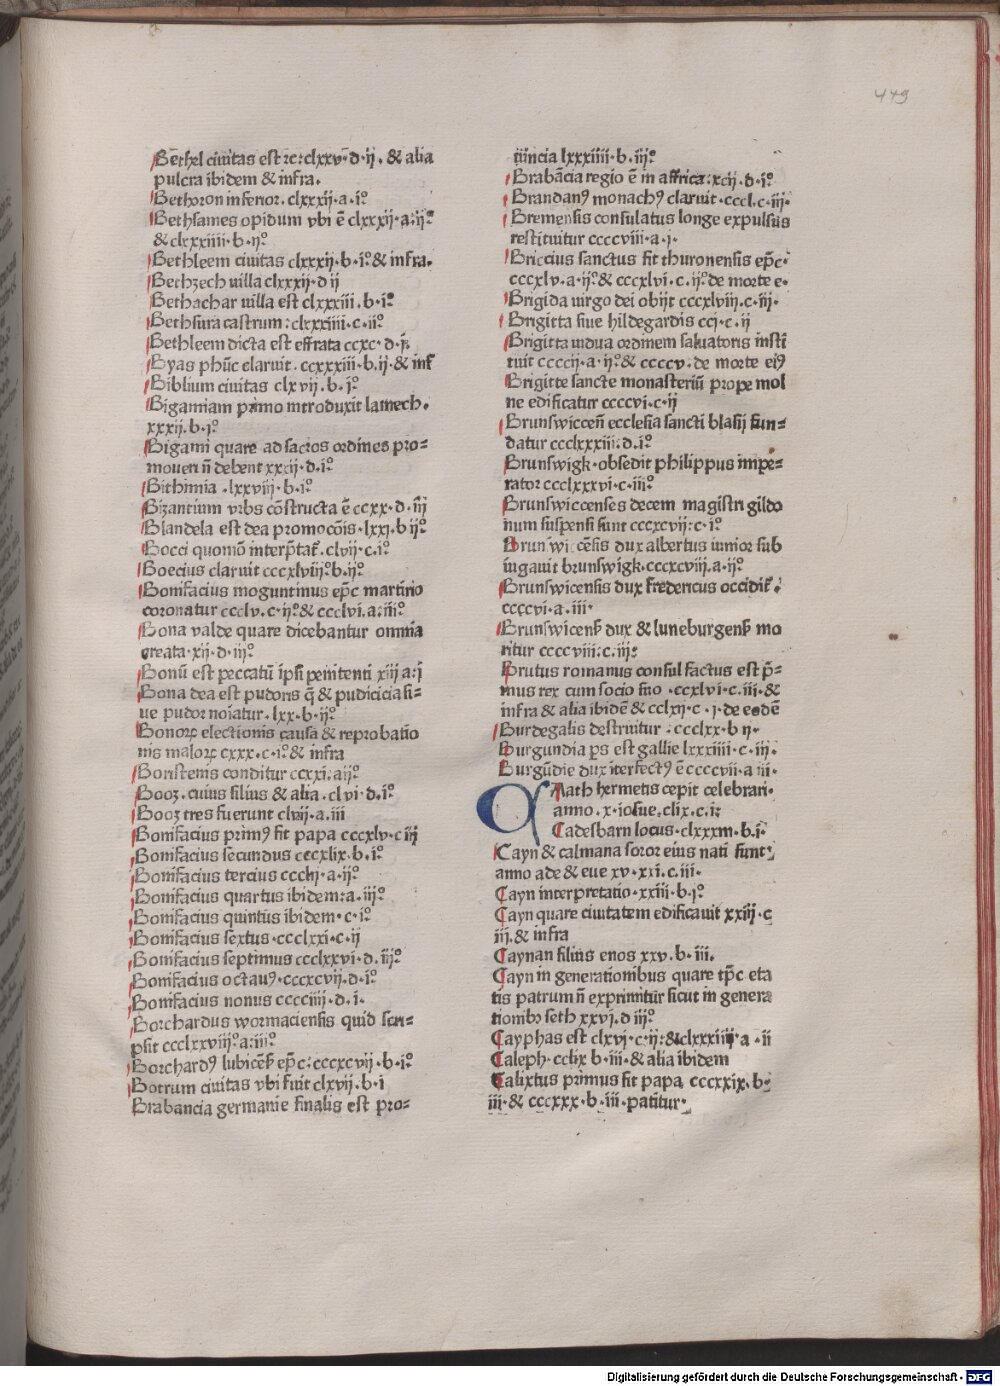 449
Bethel ciuitas est ⁊c: clxxv. d. ij. & alia
pulcra ibidem & infra.
Bethoron inferior. clxxxij. a. iº
Bethsames opidum vbi ē clxxxij. a: ijº
& clxxxiiii. b. ijº
Bethleem ciuitas clxxxij. b. iº & infra.
Bethzech uilla clxxxij. d ij
Bethachar uilla est clxxxiii. b. iº
Bethsura castrum: clxxxiiii. c. iiº
Bethleem dicta est effrata ccxc. d. i
Byas phūc claruit. ccxxxiii. b. ij. & inf
Biblium ciuitas clxvij. b. iº
Bigamiam primo introduxit lamech.
xxxij. b. iº
Bigami quare ad sacros ordines pro=
moueri n̄ debent xxxij. d. iº
Bithimia . lxxviij. b. iº
Bizantium vrbs cōstructa ē ccxx. d. iij
Blandela est dea promocōis. lxxi. b ijº
Bocci quomō interp̄tat̄. clvij. c. iº
Boecius claruit cccxlviijº b. ijº
Bonifacius moguntinus ep̄c martirio
coronatur ccclv. c. ijº & ccclvi. a: iijº
Bona valde quare dicebantur omnia
creata. xij. d. iijº
Bonū est peccatū ip̄si penitenti xiij a: i
Bona dea est pudoris q̄ & pudicicia si=
ue pudor noiatur. lxx. b. ijº
Bonorꝝ electionis causa & reprobatio
nis malorꝝ cxxx. c. iº & infra
Boristenis conditur ccxxi. aijº
Booz. cuius filius & alia. clvi. d. iº
Booz tres fuerunt clvij. a. iii
Bonifacius primꝰ fit papa cccxlv. c iij
Bonifacius secundus cccxlix. b. iº
Bonifacius tercius ccclij. a. ijº
Bonifacius quartus ibidem: a. iijº
Bonifacius quintus ibidem. c. iº
Bonifacius sextus. ccclxxi. c. ij
Bonifacius septimus ccclxxvi. d. iijº
Bonifacius octauꝰ. cccxcvij. d. iº
Bonifacius nonus cccciiij. d. i.
Borchardus wormaciensis quid scri=
psit ccclxxviijº a: iijº
Borchardꝰ lubicēs̄ ep̄c: cccxcvij. b. iº
Botrum ciuitas vbi fuit clxvij. b. i
Brabancia germanie finalis est pro=
uincia lxxxiiii. b. iijº
Brabācia regio ē in affrica: xcij. d. iº
Brandanꝰ monachꝰ claruit. cccl. c. iij.
Bremensis consulatus longe expulsus
restituitur ccccviii. a. i.
Briccius sanctus fit thuronensis ep̄c.
cccxlv. a. ijº & cccxlvi. c. ijº de morte e.
Brigida uirgo dei obijt cccxlviij. c. iij.
Brigitta siue hildegardis ccj. c. ij
Brigitta uidua ordinem saluatoris insti
tuit ccccij. a. ijº & ccccv: de morte eiꝰ
Brigitte sancte monasteriū prope mol
ne edificatur ccccvi. c. ij
Brunswiccen̄ ecclesia sancti blasij fun=
datur ccclxxxiii. d. iº
Brunswigk. obsedit philippus impe=
rator ccclxxxvi. c. iijº
Brunswiccenses decem magistri gildo
num suspensi sunt cccxcvij: c. iº
Brunswiccēsis dux albertus iunior sub
iugauit brunswigk. cccxcviij. a. ijº
Brunswicensis dux fredericus occidit̄.
ccccvi. a. iii.
Brunswicens̄ dux & luneburgens̄ mo
ritur ccccviii: c. iij:
Brutus romanus consul factus est p̄=
mus rex cum socio suo. ccxlvi. c. iii. &
infra & alia ibidē & cclxij. c. i. de eodē
Burdegalis destruitur. ccclxx. b ij.
Burgundia p̄s est gallie lxxxiiii. c. iij.
Burgūdie dux īterfectꝰ ē ccccvii. a iii.
CAath hermetis cepit celebrari.
anno. x. iosue. clix. c. i:
Cadesbarn locus. clxxxiii. b. i.
Cayn & calmana soror eius nati sunt
anno ade & eue xv. xxi. c. iii.
Cayn interpretatio. xxiii. b. iº
Cayn quare ciuitatem edificauit xxiij. c
iij. & infra
Caynan filius enos xxv. b. iii.
Cayn in generationibus quare tp̄c eta
tis patrum n̄ exprimitur sicut in genera
tionibꝰ seth xxvi. d iijº
Cayphas est clxvi. c. ij: & clxxxiiij. a. ii
Caleph. cclix b. iii. & alia ibidem
Calixtus primus fit papa cccxxix. b.
iii. & cccxxx. b. iii. patitur.
Digitalisierung gefördert durch die Deutsche Forschungsgemeinschaft - DFG